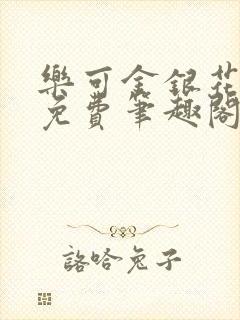 樂可金銀花
免費筆趣閣
諮哈兔子